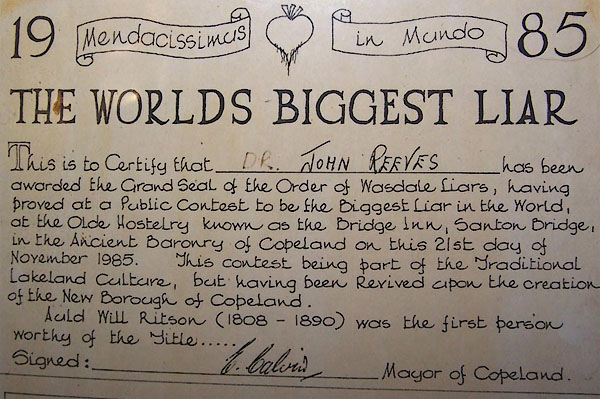 19 Mendacissimus in Mundo 85
THE WORLDS BIGGEST LIAR
This is to Certify that DR. JOHN REEVES has been
awarded the Grand Seal of the Order of Wasdale Liars, having
proved at a Public Contest to be the Biggest Liar in the World,
at the Olde Hostelry known as the Bridge Inn, Santon Bridge,
in the Ancient Baronry of Copeland on this 21st day of
November 1985. This contest being part of the Traditional
Lakeland Culture, but having been Revived upon the creation
of the New Borough of Copeland.
Auld Will Ritson (1808 - 1890) was the first person
worthy of the Title.....
Signed: Mayor of Copeland.